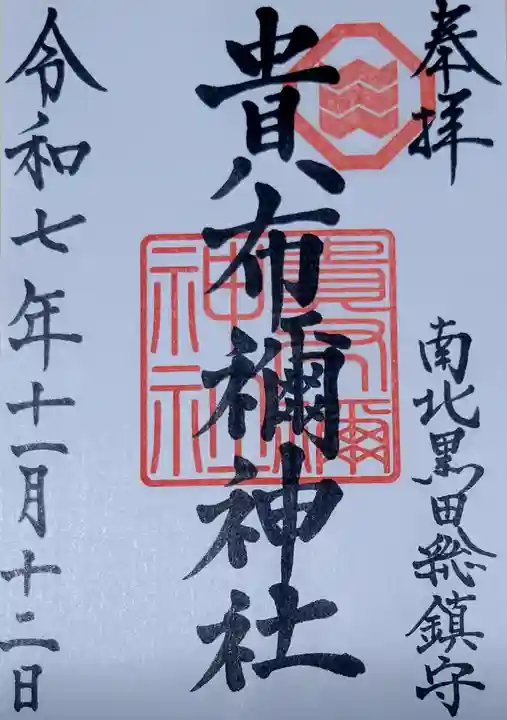 奉拝
南北黒田総鎮守
貴布禰神社
貴布禰
神社
令和七年十一月十二日